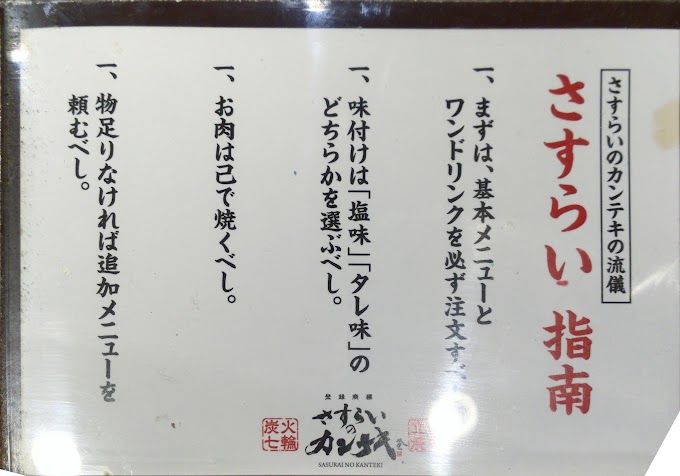 さすらいのカンテキの流儀
さすらい指南
一、まずは、基本メニューと
ワンドリンクを必ず注文す
一、味付けは「塩味」「タレ味」の
どちらかを選ぶべし。
一、お肉は己で焼くべし。
一、物足りなければ追加メニューを
頼むべし。
火輪
炭七
登録商標
さすらい
の
カンテキ
SASURAI NO KANTEKI